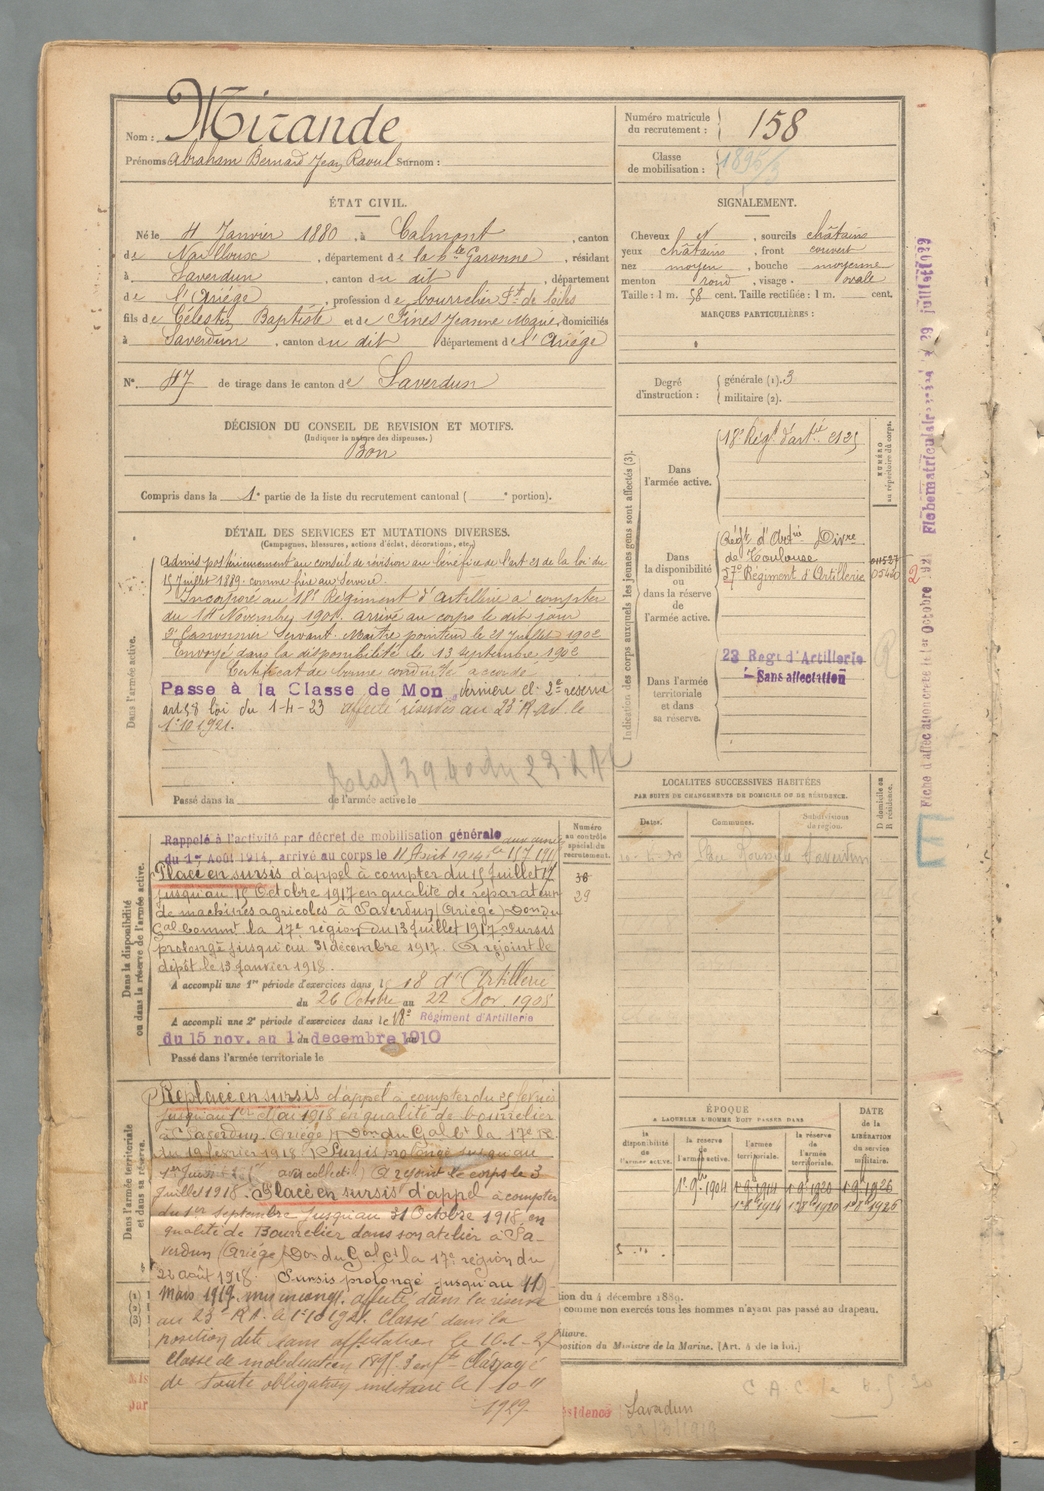 Nom : Mirande
Prénoms Abraham Bernard Jean Raoul Surnom :
Numéro matricule du recrutement : 158
Classe de mobilisation : 1895/3
ÉTAT CIVIL.
Né le 4 Janvier 1880, à Calmont, canton
de Nailloux, département de la Hte Garonne, résidant
à Saverdun, canton du dit, département
de l'Ariège, profession de bourrelier
fils de Célestin Baptiste et de Pinès Jeanne Marie, domiciliés
à Saverdun, canton du dit département de l'Ariège
N° 47 de tirage dans le canton de Saverdun
SIGNALEMENT.
Cheveux et, sourcils châtains
yeux châtains, front couvert
nez moyen, bouche moyenne
menton rond, visage ovale
Taille : 1 m. 58 cent. Taille rectifiée : 1 m. cent.
MARQUES PARTICULIÈRES :
Degré d'instruction : générale (1). 3
militaire (2).
DÉCISION DU CONSEIL DE REVISION ET MOTIFS.
(Indiquer la nature des dispenses.)
Bon
Compris dans la 1e partie de la liste du recrutement cantonal ( e portion).
DÉTAIL DES SERVICES ET MUTATIONS DIVERSES.
(Campagnes, blessures, actions d'éclat, décorations, etc.)
Dans l'armée active.
Admis postérieurement au conseil de révision au bénéfice de l'art 21 de la loi du
15 Juillet 1889 comme frère au Service
Incorporé au 18e Régiment d'Artillerie à compter
du 14 Novembre 1901 arrivé au corps le dit jour
2e Canonnier Servant. Maître pointeur le 21 Juillet 1902
Envoyé dans la disponibilité le 13 septembre 1902
Certificat de bonne conduite accordé
Passé à la Classe de Mon dernière cl. 2e réserve
art 58 loi du 1-4-23 affecté réserves au 23 R.A. le
1.10.1921.
Passé dans la de l'armée active le
Indication des corps auxquels les jeunes gens sont affectés (3).
NUMÉRO au répertoire du corps.
Dans l'armée active.
18e Régt d'artie
Dans la disponibilité ou dans la réserve de l'armée active.
Régt d'Artie Divre
de Toulouse
57e Régiment d'Artillerie
Dans l'armée territoriale et dans sa réserve.
23 Régt d'Artillerie
Sans affectation
Fiche d'affectation créée le 1er Octobre 1921
LOCALITÉS SUCCESSIVES HABITÉES
PAR SUITE DE CHANGEMENTS DE DOMICILE OU DE RÉSIDENCE.
Dates. Communes. Subdivisions de région. D domicile ou R résidence.
Dans la disponibilité ou dans la réserve de l'armée active.
Numéro au contrôle spécial du recrutement.
38
29
Rappelé à l'activité par décret de mobilisation générale
du 1er Août 1914, arrivé au corps le 11 Août 1914
Placé en sursis d'appel à compter du 15 Juillet 17
jusqu'au 15 Octobre 1917 en qualité de réparateur
de machines agricoles à Saverdun (Ariège) Don du
Gal Commt la 17e région du 13 Juillet 1917. Sursis
prolongé jusqu'au 31 décembre 1917. A rejoint le
dépôt le 13 Janvier 1918.
A accompli une 1re période d'exercices dans le 18 d'Artillerie
du 26 Octobre au 22 Nov. 1908
A accompli une 2e période d'exercices dans le 18e Régiment d'Artillerie
du 15 nov. au 1 decembre 1910
Passé dans l'armée territoriale le
Dans l'armée territoriale et dans sa réserve.
Replacé en sursis d'appel à compter du 25 février
jusqu'au 1er Mai 1918 en qualité de bourrelier
à Saverdun (Ariège) Don du Gal Ct la 17e R.
du 19 février 1918. Sursis prolongé jusqu'au
1er Juin A rejoint le corps le 3
Juillet 1918. Placé en sursis d'appel à compter
du 1er Septembre jusqu'au 31 Octobre 1918 en
qualité de Bourrelier dans son atelier à Sa-
verdun (Ariège) Don du Gal Ct la 17e région du
22 août 1918. Sursis prolongé jusqu'au 11
Mars 1919. affecté dans la réserve
au 23e R.A. le 1.10.1921. Classé dans la
position dite sans affectation le 10-1-27
Classe de mobilisation 1895. 3 enfts Dégagé
de toute obligation militaire le 10-11
1929
ÉPOQUE
A LAQUELLE L'HOMME DOIT PASSER DANS
la disponibilité de l'armée active. la réserve de l'armée active. l'armée territoriale. la réserve de l'armée territoriale.
DATE de la LIBÉRATION du service militaire.
1er 9bre 1904 1er 9 1914 1er 9 1920 1er 9 1926
1er 8bre 1914 1er 8bre 1920 1er 8bre 1926
tion du 4 décembre 1889.
comme non exercés tous les hommes n'ayant pas passé au drapeau.
position du Ministre de la Marine. (Art. 4 de la loi.)
résidence Saverdun